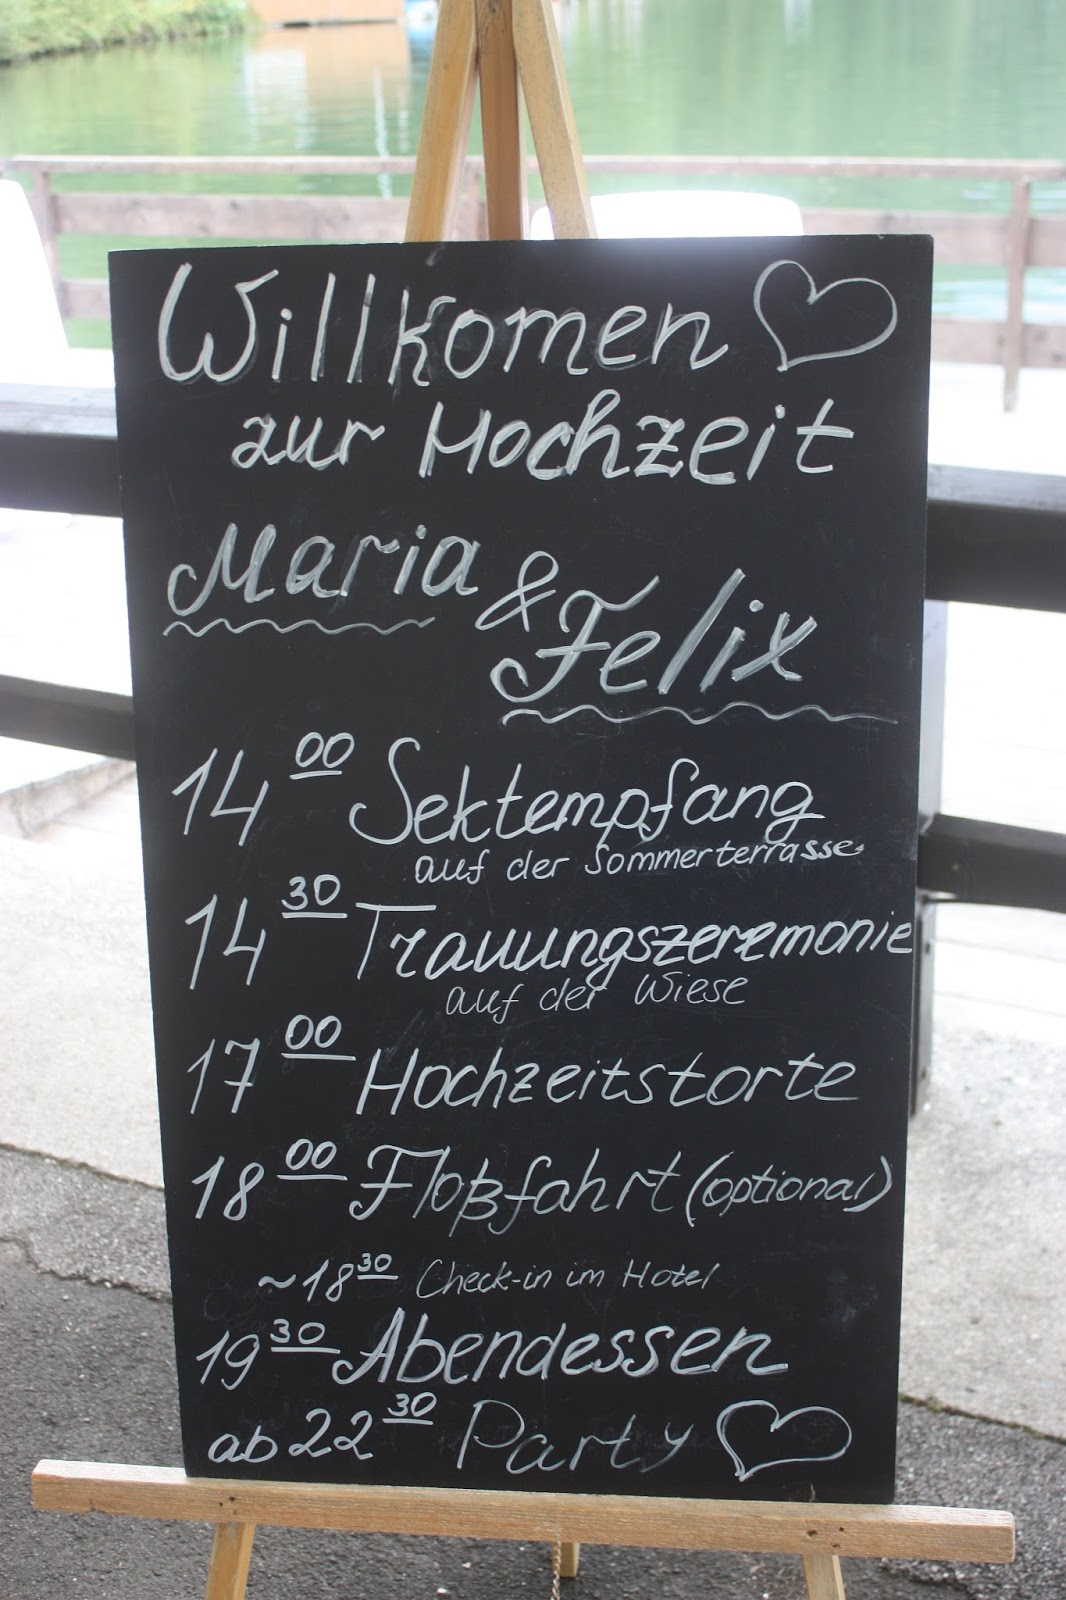 Willkomen
zur Hochzeit
Maria
& Felix
14 00 Sektempfang
auf der Sommerterrasse
14 30 Trauungszeremonie
auf der Wiese
17 00 Hochzeitstorte
18 00 Floßfahrt (optional)
~18 30 Check-in im Hotel
19 30 Abendessen
ab 22 30 Party